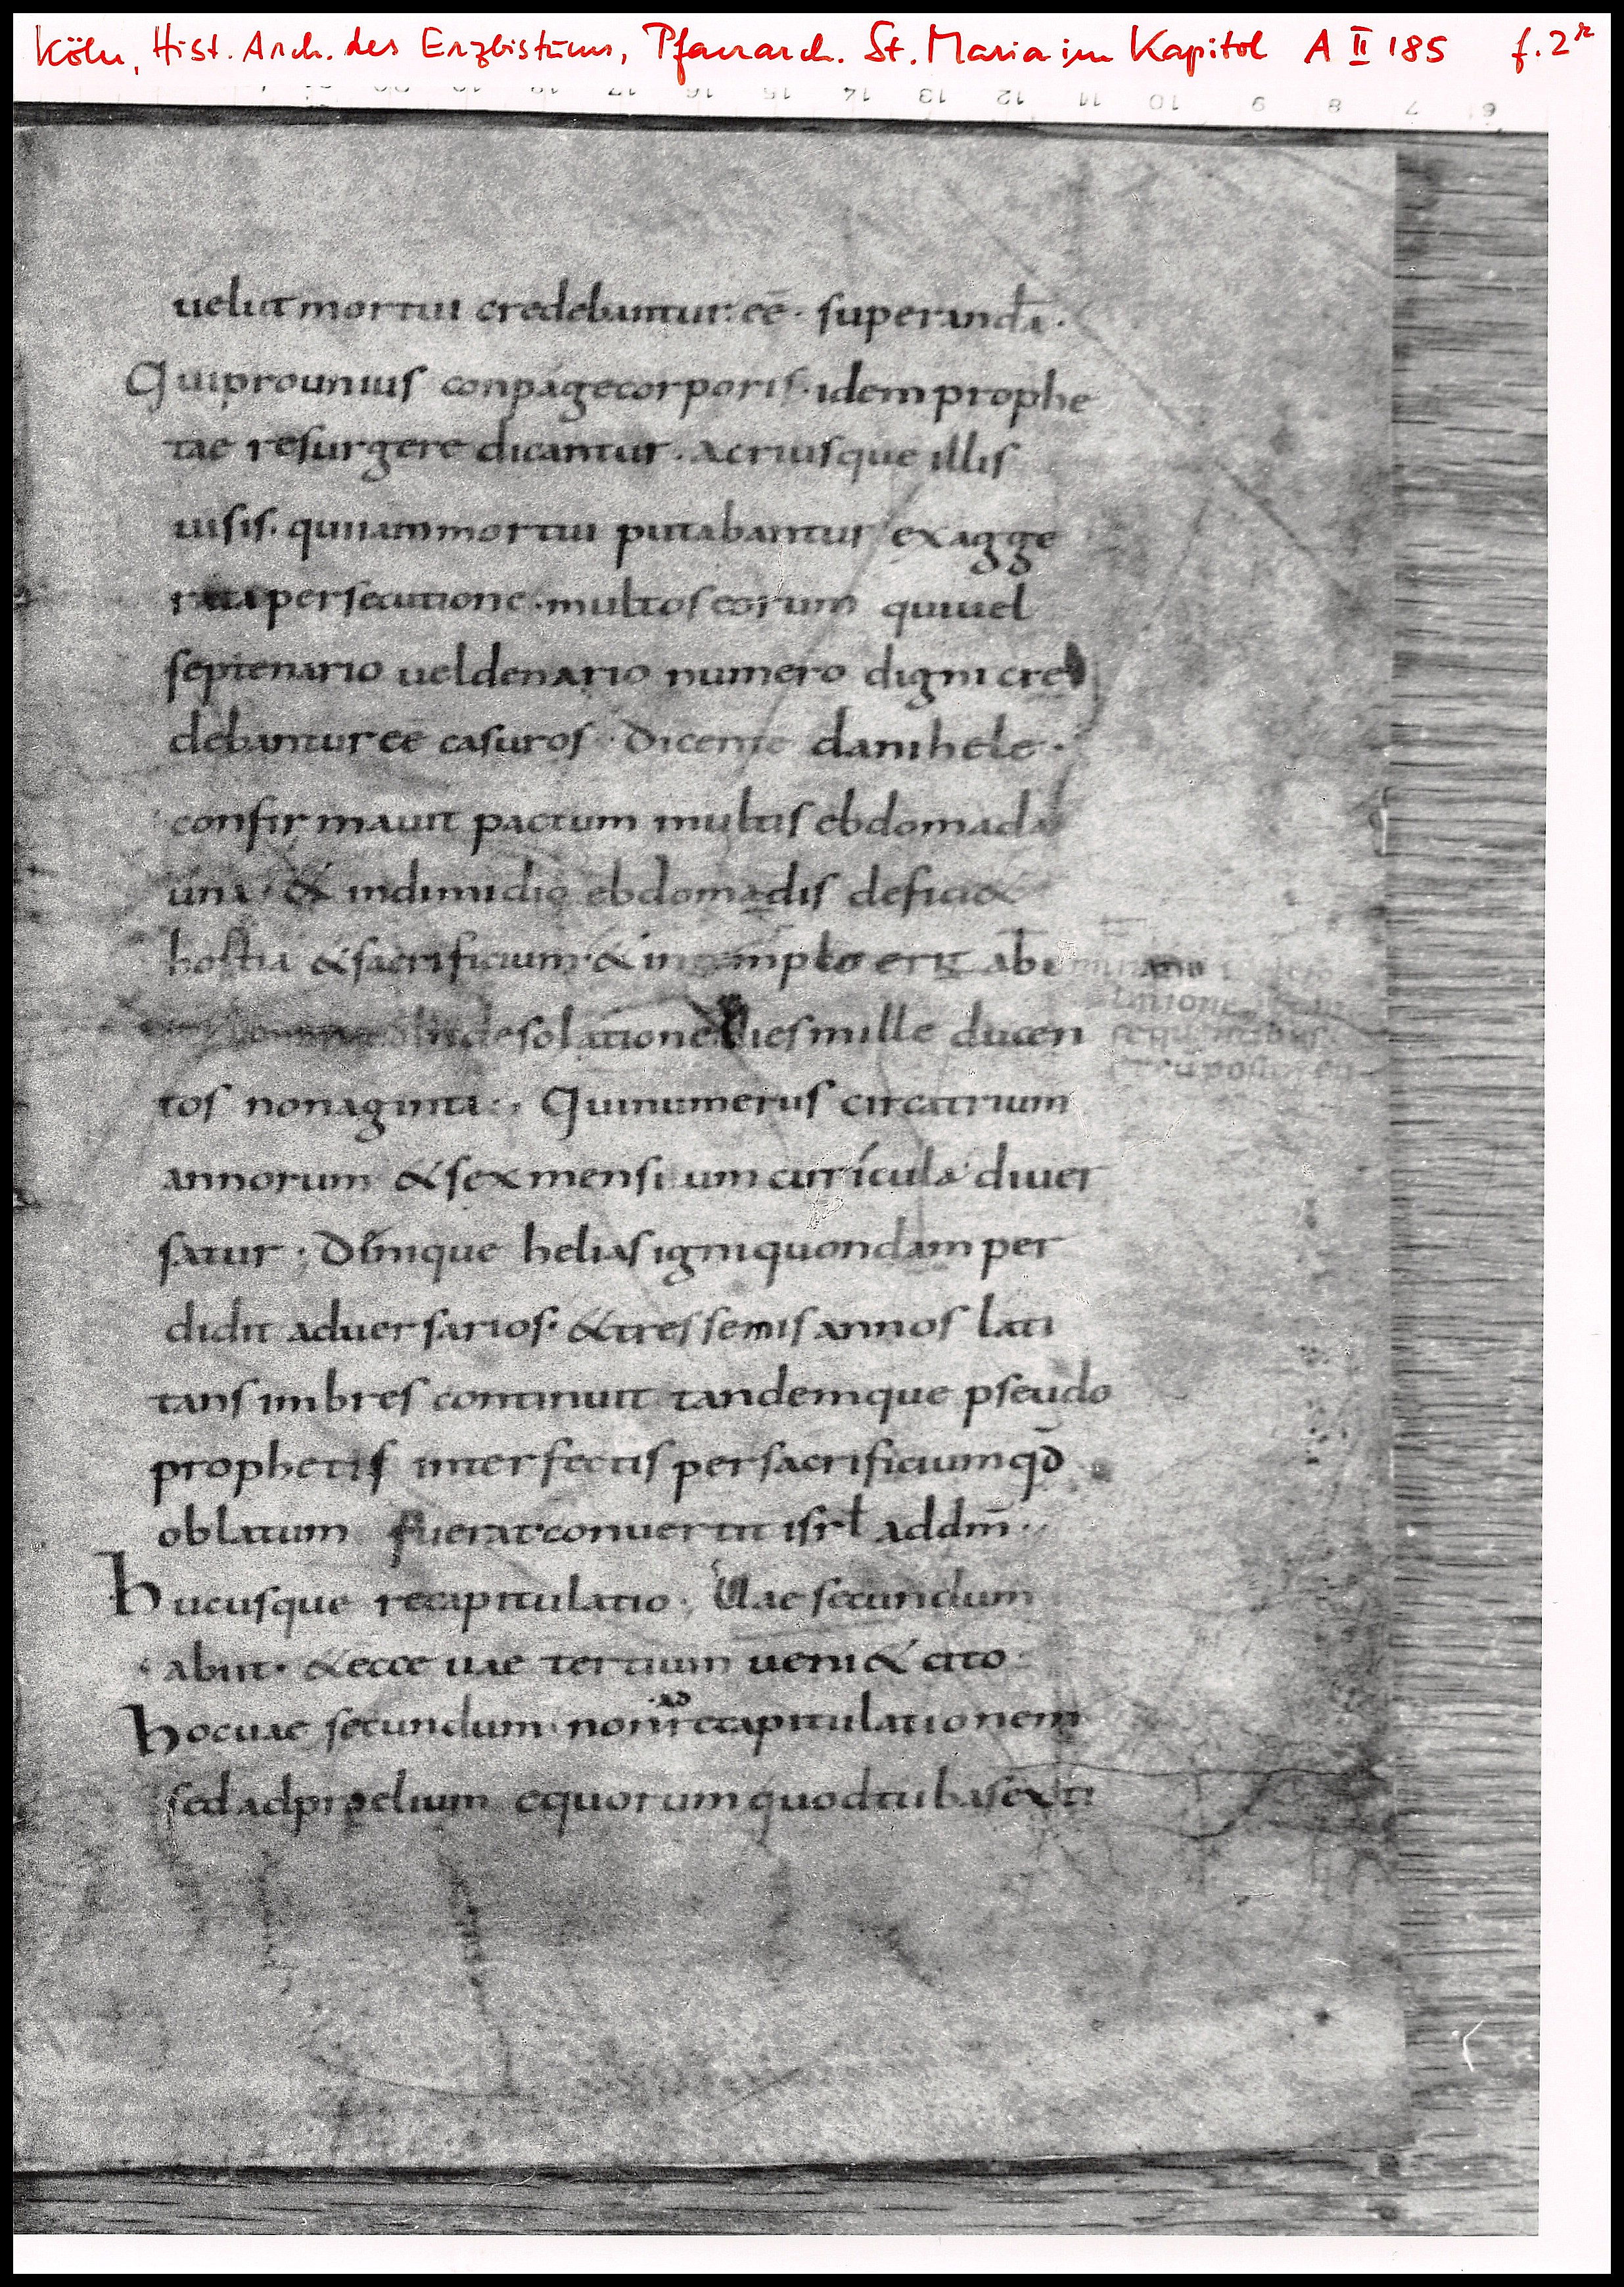 Köln, Hist. Arch. des Erzbistums, Pfarrarch. St. Maria im Kapitol A II 185 f. 2r
17 16 15 14 13 12 11 10 9 8 7 6
uelut mortui credebantur. eē · superanda ·
Qui pro unius conpage corporis · idem prophe
tae resurgere dicantur · acriusque illis
uisis · qui iam mortui putabantur exagge
rata persecutione · multos eorum qui uel
septenario uel denario numero digni cre
debantur eē casuros · dicente danihele ·
confirmauit pactum multis ebdomada
una · & in dimidio ebdomadis defici&
hostia & sacrificium · & in templo erit
desolatione dies mille ducen
sequentibus
tos nonaginta ·, Qui numerus circa trium
annorum & sex mensium curricula diuer
satur · Denique helias igni quondam per
didit aduersarios · & tres semis annos lati
tans imbres continuit tandemque pseudo
prophetis interfectis per sacrificium qd̄
oblatum fuerat conuertit isrł ad dm̄ ·
hucusque recapitulatio · Uae secundum
abiit · & ecce uae tertium ueni& cito
hoc uae secundum non ad recapitulationem
sed ad proelium equorum quod tuba sexti